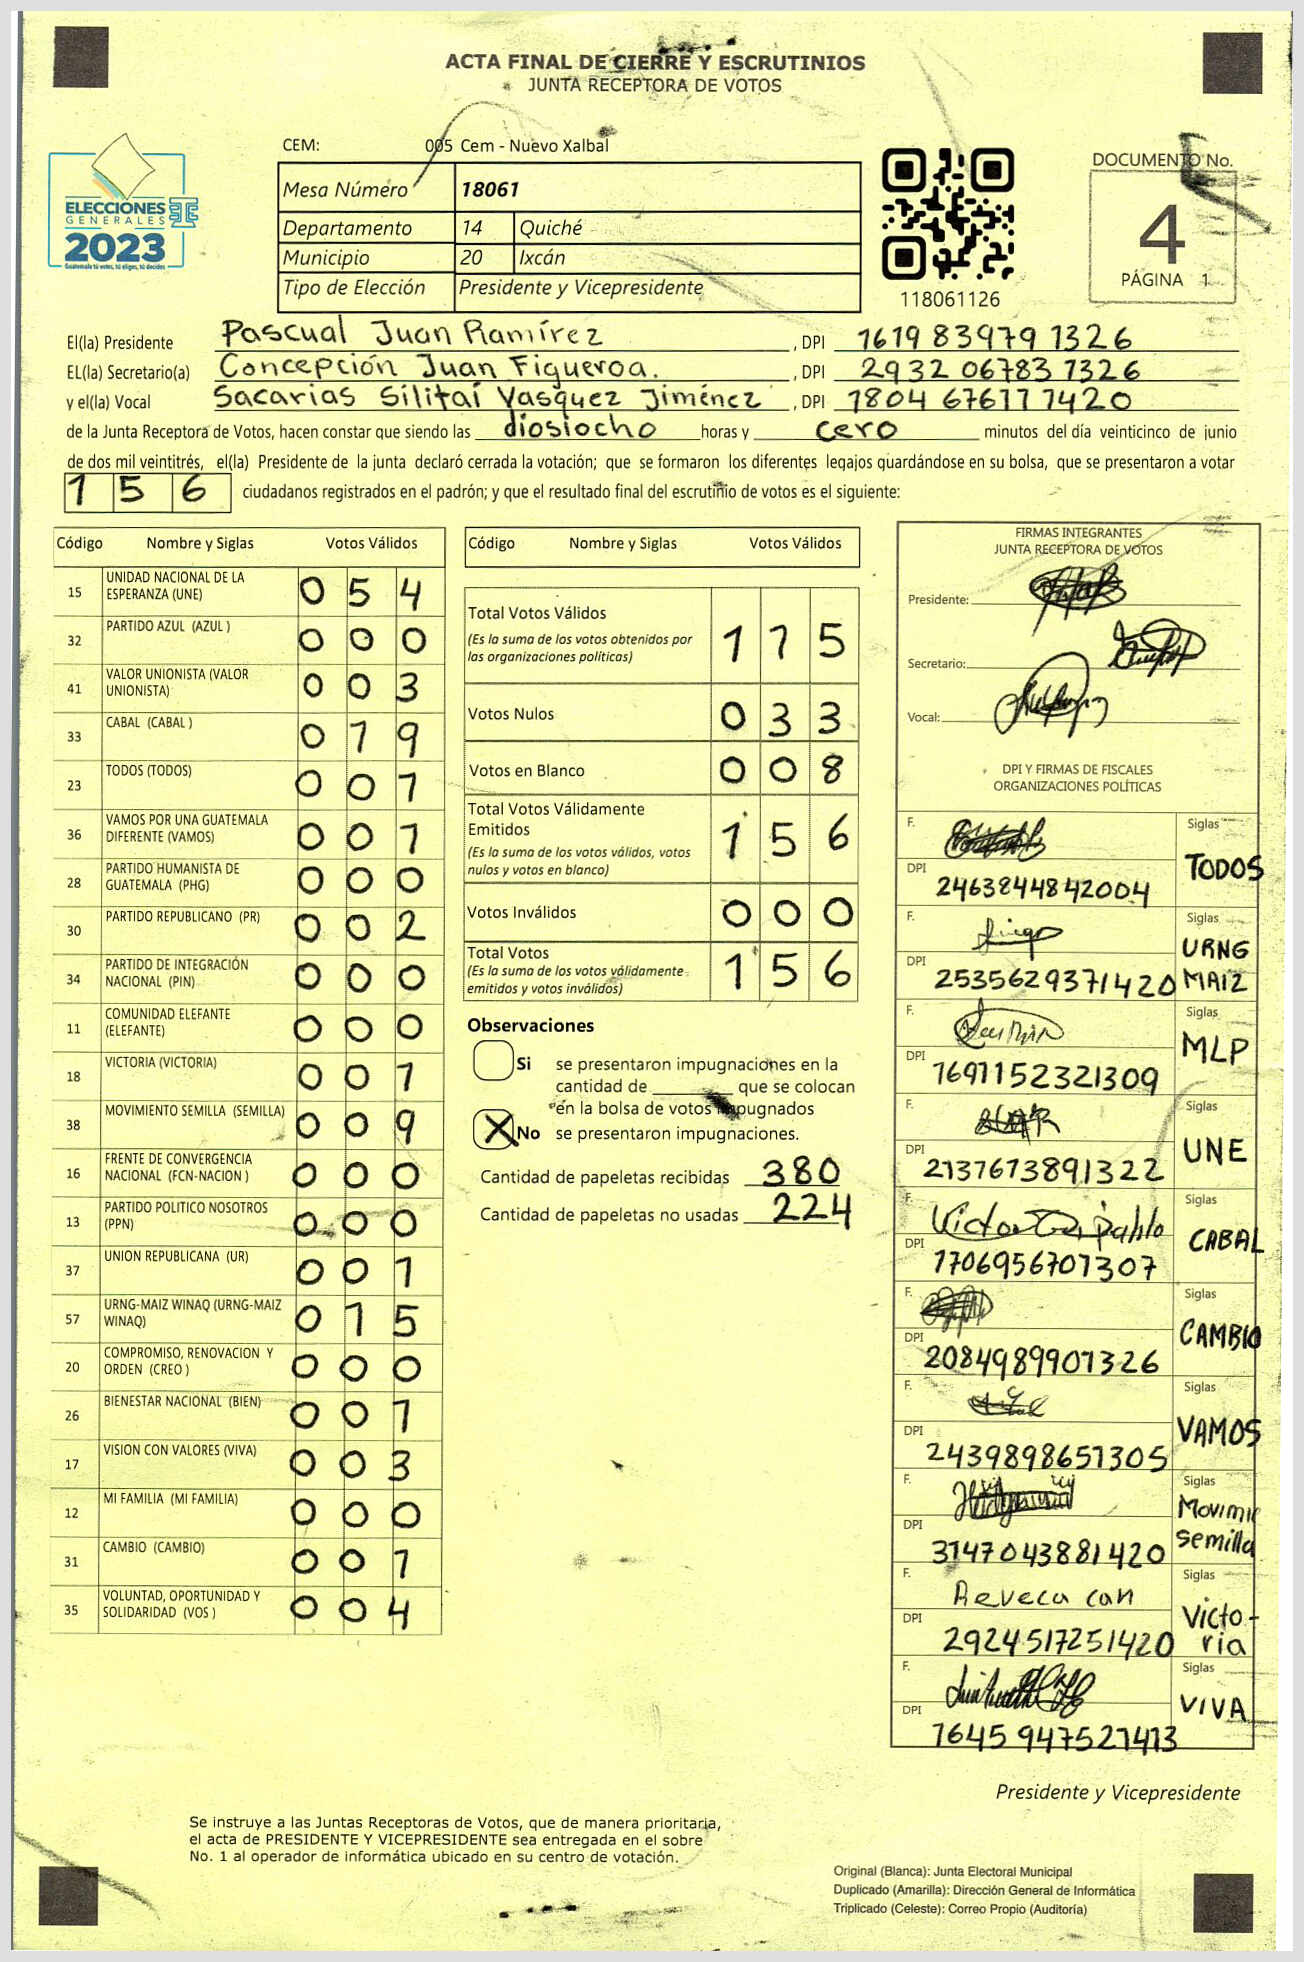 ACTA FINAL DE CIERRE Y ESCRUTINIOS
JUNTA RECEPTORA DE VOTOS
ELECCIONES
GENERALES
2023
Guatemala tú votes, tú eliges, tú decides
CEM: 005 Cem - Nuevo Xalbal
Mesa Número 18061
Departamento 14 Quiché
Municipio 20 Ixcán
Tipo de Elección Presidente y Vicepresidente
118061126
DOCUMENTO No.
4
PÁGINA 1
El(la) Presidente Pascual Juan Ramírez , DPI 1619 83979 1326
EL(la) Secretario(a) Concepción Juan Figueroa. , DPI 2932 06783 1326
y el(la) Vocal Sacarias Silitaí Vasquez Jiménez , DPI 1804 67611 1420
de la Junta Receptora de Votos, hacen constar que siendo las diosiocho horas y cero minutos del día veinticinco de junio
de dos mil veintitrés, el(la) Presidente de la junta declaró cerrada la votación; que se formaron los diferentes legajos guardándose en su bolsa, que se presentaron a votar
156 ciudadanos registrados en el padrón; y que el resultado final del escrutinio de votos es el siguiente:
Código Nombre y Siglas Votos Válidos
15 UNIDAD NACIONAL DE LA ESPERANZA (UNE) 054
32 PARTIDO AZUL (AZUL ) 000
41 VALOR UNIONISTA (VALOR UNIONISTA) 003
33 CABAL (CABAL ) 019
23 TODOS (TODOS) 001
36 VAMOS POR UNA GUATEMALA DIFERENTE (VAMOS) 001
28 PARTIDO HUMANISTA DE GUATEMALA (PHG) 000
30 PARTIDO REPUBLICANO (PR) 002
34 PARTIDO DE INTEGRACIÓN NACIONAL (PIN) 000
11 COMUNIDAD ELEFANTE (ELEFANTE) 000
18 VICTORIA (VICTORIA) 001
38 MOVIMIENTO SEMILLA (SEMILLA) 009
16 FRENTE DE CONVERGENCIA NACIONAL (FCN-NACION ) 000
13 PARTIDO POLITICO NOSOTROS (PPN) 000
37 UNION REPUBLICANA (UR) 001
57 URNG-MAIZ WINAQ (URNG-MAIZ WINAQ) 015
20 COMPROMISO, RENOVACION Y ORDEN (CREO ) 000
26 BIENESTAR NACIONAL (BIEN) 001
17 VISION CON VALORES (VIVA) 003
12 MI FAMILIA (MI FAMILIA) 000
31 CAMBIO (CAMBIO) 001
35 VOLUNTAD, OPORTUNIDAD Y SOLIDARIDAD (VOS ) 004
Código Nombre y Siglas Votos Válidos
Total Votos Válidos 115
(Es la suma de los votos obtenidos por
las organizaciones políticas)
Votos Nulos 033
Votos en Blanco 008
Total Votos Válidamente
Emitidos 156
(Es la suma de los votos válidos, votos
nulos y votos en blanco)
Votos Inválidos 000
Total Votos 156
(Es la suma de los votos válidamente
emitidos y votos inválidos)
Observaciones
Si se presentaron impugnaciones en la
cantidad de ______ que se colocan
en la bolsa de votos impugnados
X No se presentaron impugnaciones.
Cantidad de papeletas recibidas 380
Cantidad de papeletas no usadas 224
FIRMAS INTEGRANTES
JUNTA RECEPTORA DE VOTOS
Presidente:
Secretario:
Vocal:
DPI Y FIRMAS DE FISCALES
ORGANIZACIONES POLÍTICAS
F. Siglas TODOS
DPI 2463844842004
F. Siglas URNG MAIZ
DPI 2535629371420
F. Siglas MLP
DPI 1691152321309
F. Siglas UNE
DPI 2137613891322
F. Siglas CABAL
DPI 1706956701307
F. Siglas CAMBIO
DPI 2084989901326
F. Siglas VAMOS
DPI 2439898651305
F. Siglas Movimie Semilla
DPI 3147043881420
F. Reveca can Siglas Victo-ria
DPI 2924517251420
F. Siglas VIVA
DPI 1645 947521413
Presidente y Vicepresidente
Se instruye a las Juntas Receptoras de Votos, que de manera prioritaria,
el acta de PRESIDENTE Y VICEPRESIDENTE sea entregada en el sobre
No. 1 al operador de informática ubicado en su centro de votación.
Original (Blanca): Junta Electoral Municipal
Duplicado (Amarilla): Dirección General de Informática
Triplicado (Celeste): Correo Propio (Auditoría)